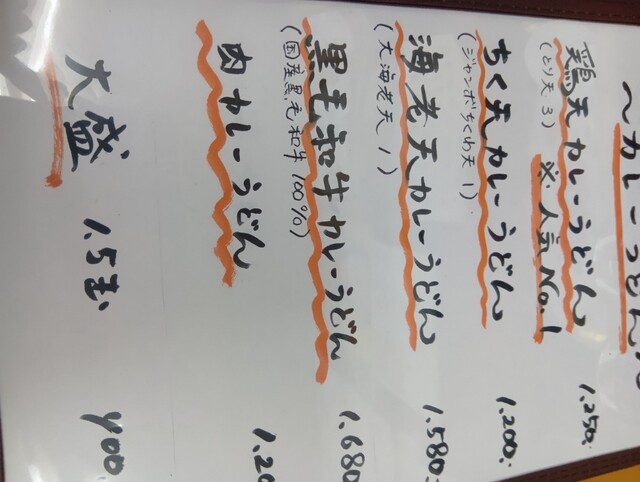 ～カレーうどん
鶏天カレーうどん 1.250.
(とり天3) ※人気No.1
ちく天カレーうどん 1.200.
(ジャンボちくわ天1)
海老天カレーうどん 1.580.
(大海老天1)
黒毛和牛カレーうどん 1.680
(国産黒毛和牛100%)
肉カレーうどん 1.20
大盛 1.5玉 400.